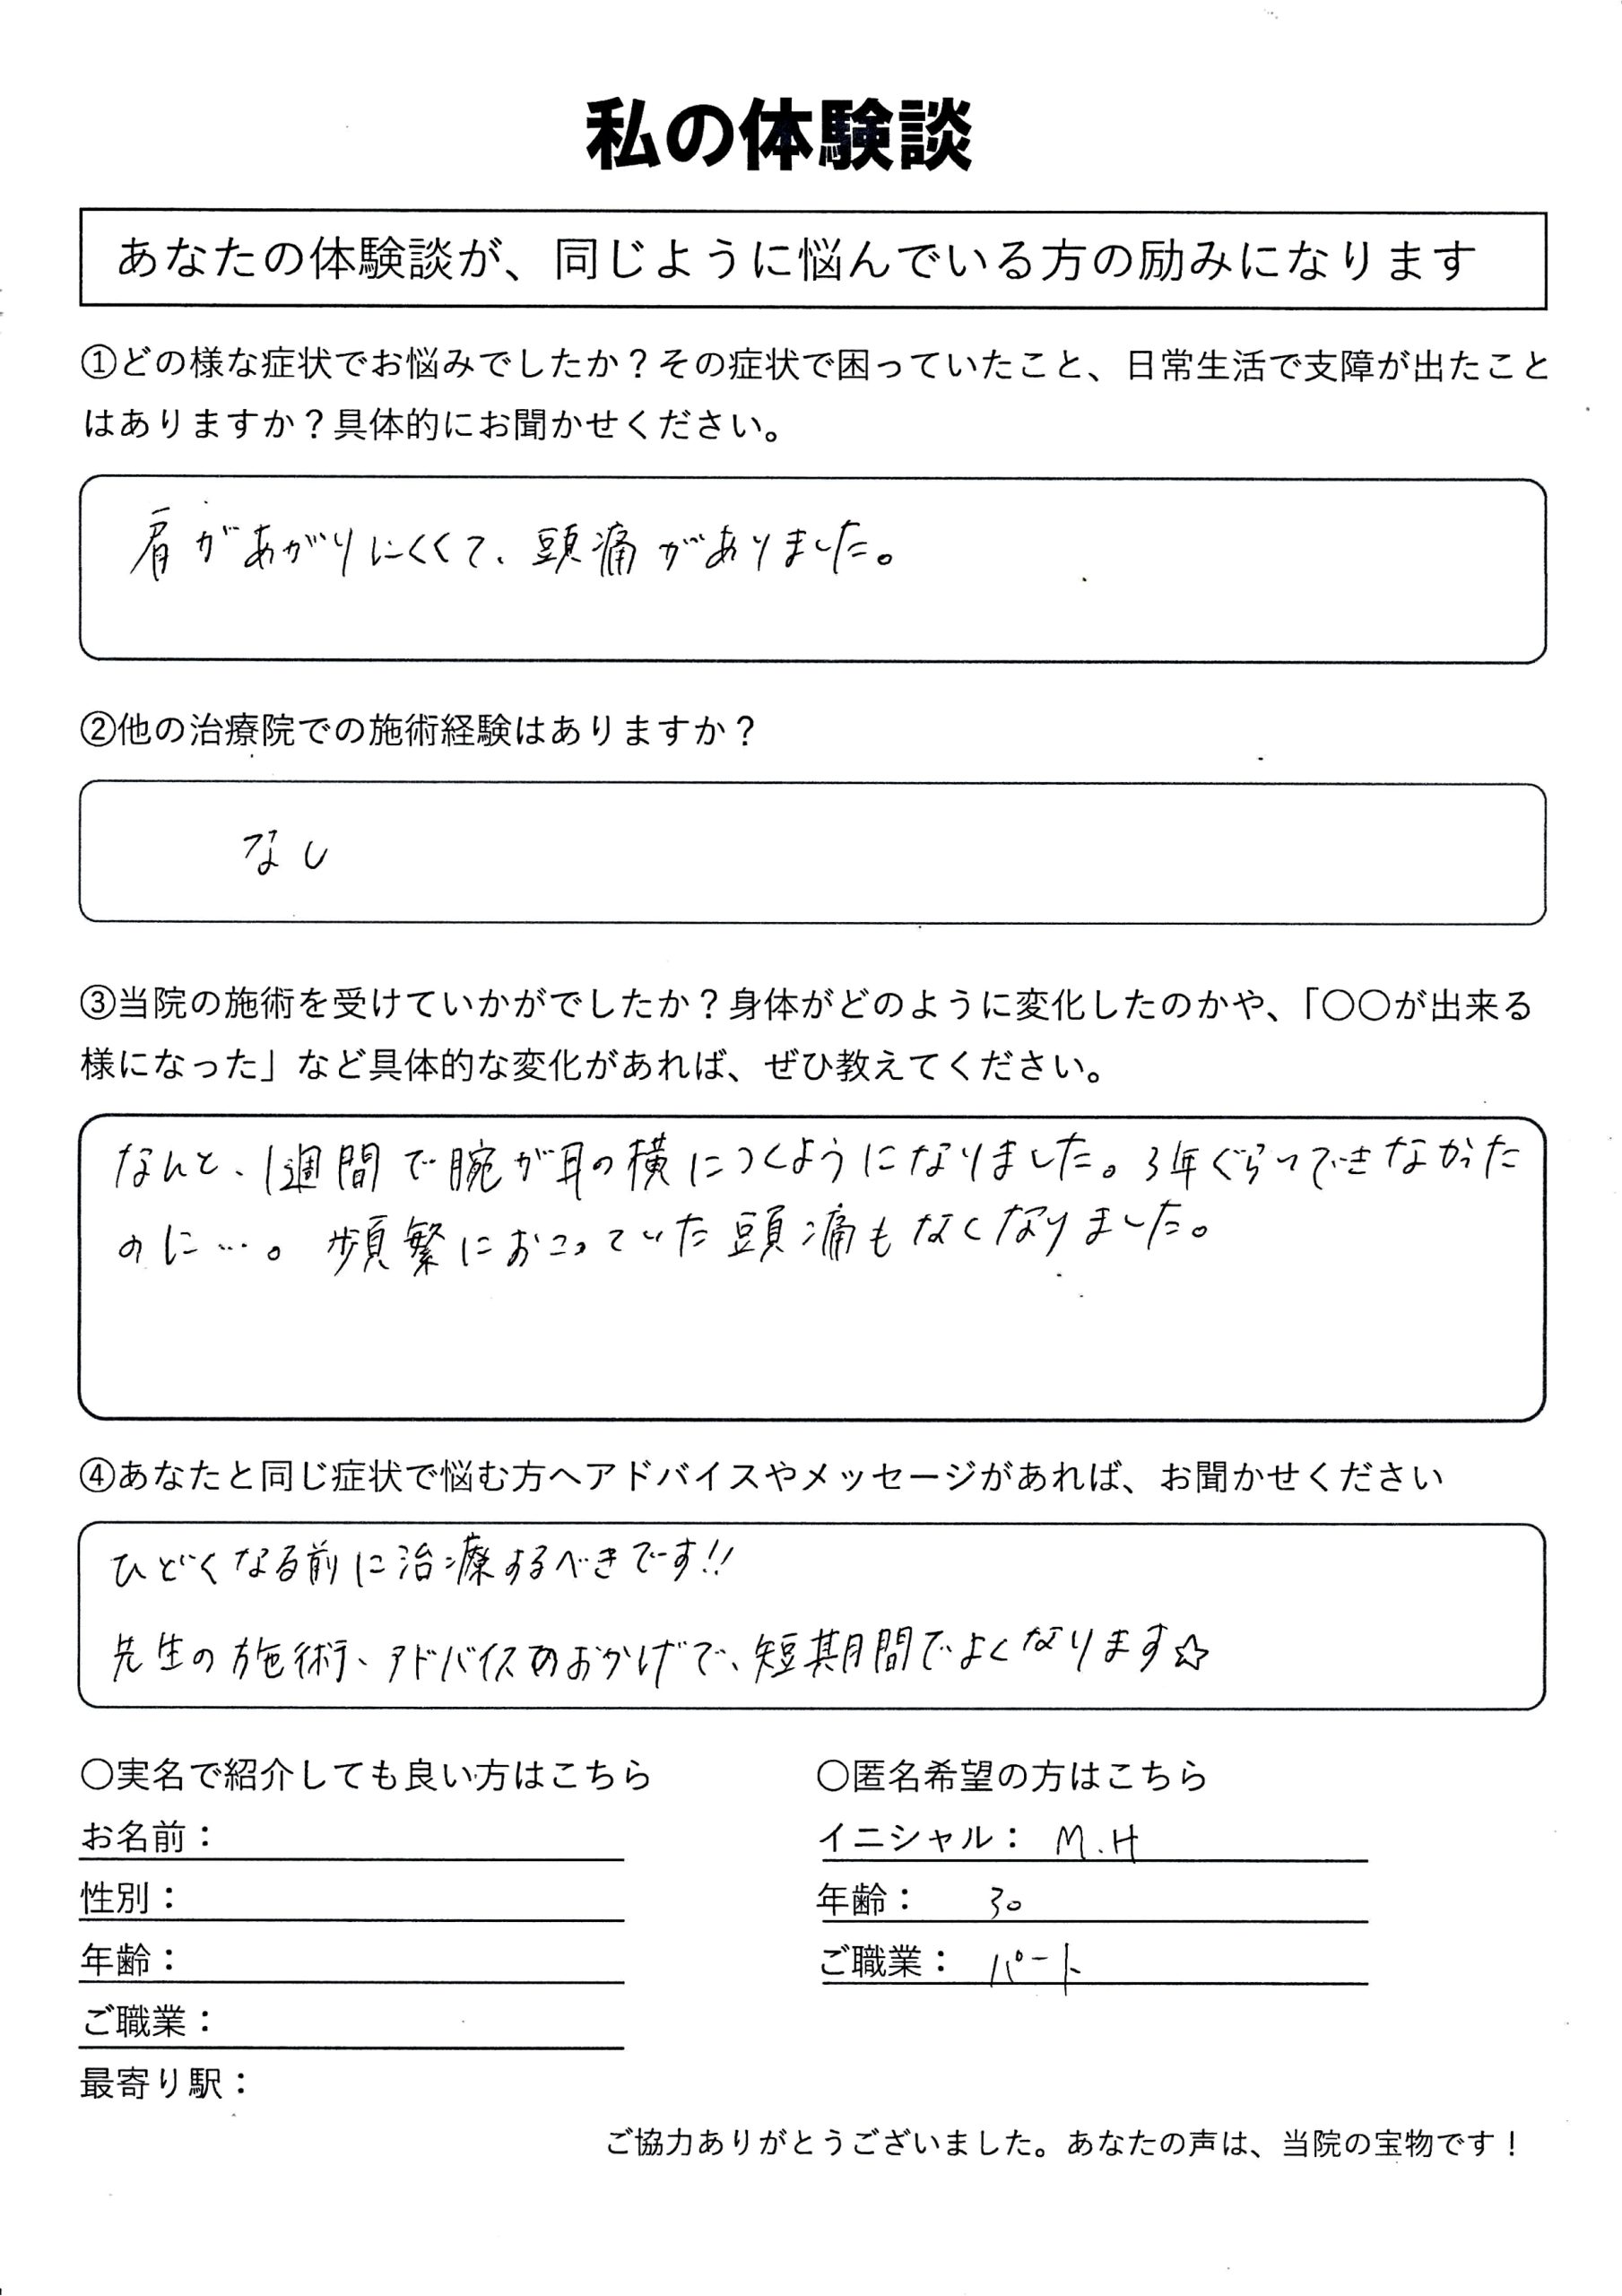 私の体験談
あなたの体験談が、同じように悩んでいる方の励みになります
①どの様な症状でお悩みでしたか？その症状で困っていたこと、日常生活で支障が出たこと
はありますか？具体的にお聞かせください。
肩があがりにくくて、頭痛がありました。
②他の治療院での施術経験はありますか？
なし
③当院の施術を受けていかがでしたか？身体がどのように変化したのかや、「〇〇が出来る
様になった」など具体的な変化があれば、ぜひ教えてください。
なんと、1週間で腕が耳の横につくようになりました。3年ぐらいできなかった
のに…。頻繁におこっていた頭痛もなくなりました。
④あなたと同じ症状で悩む方へアドバイスやメッセージがあれば、お聞かせください
ひどくなる前に治療するべきです!!
先生の施術、アドバイスのおかげで、短期間でよくなります☆
〇実名で紹介しても良い方はこちら
お名前：
性別：
年齢：
ご職業：
最寄り駅：
〇匿名希望の方はこちら
イニシャル： M.H
年齢： 30
ご職業： パート
ご協力ありがとうございました。あなたの声は、当院の宝物です！